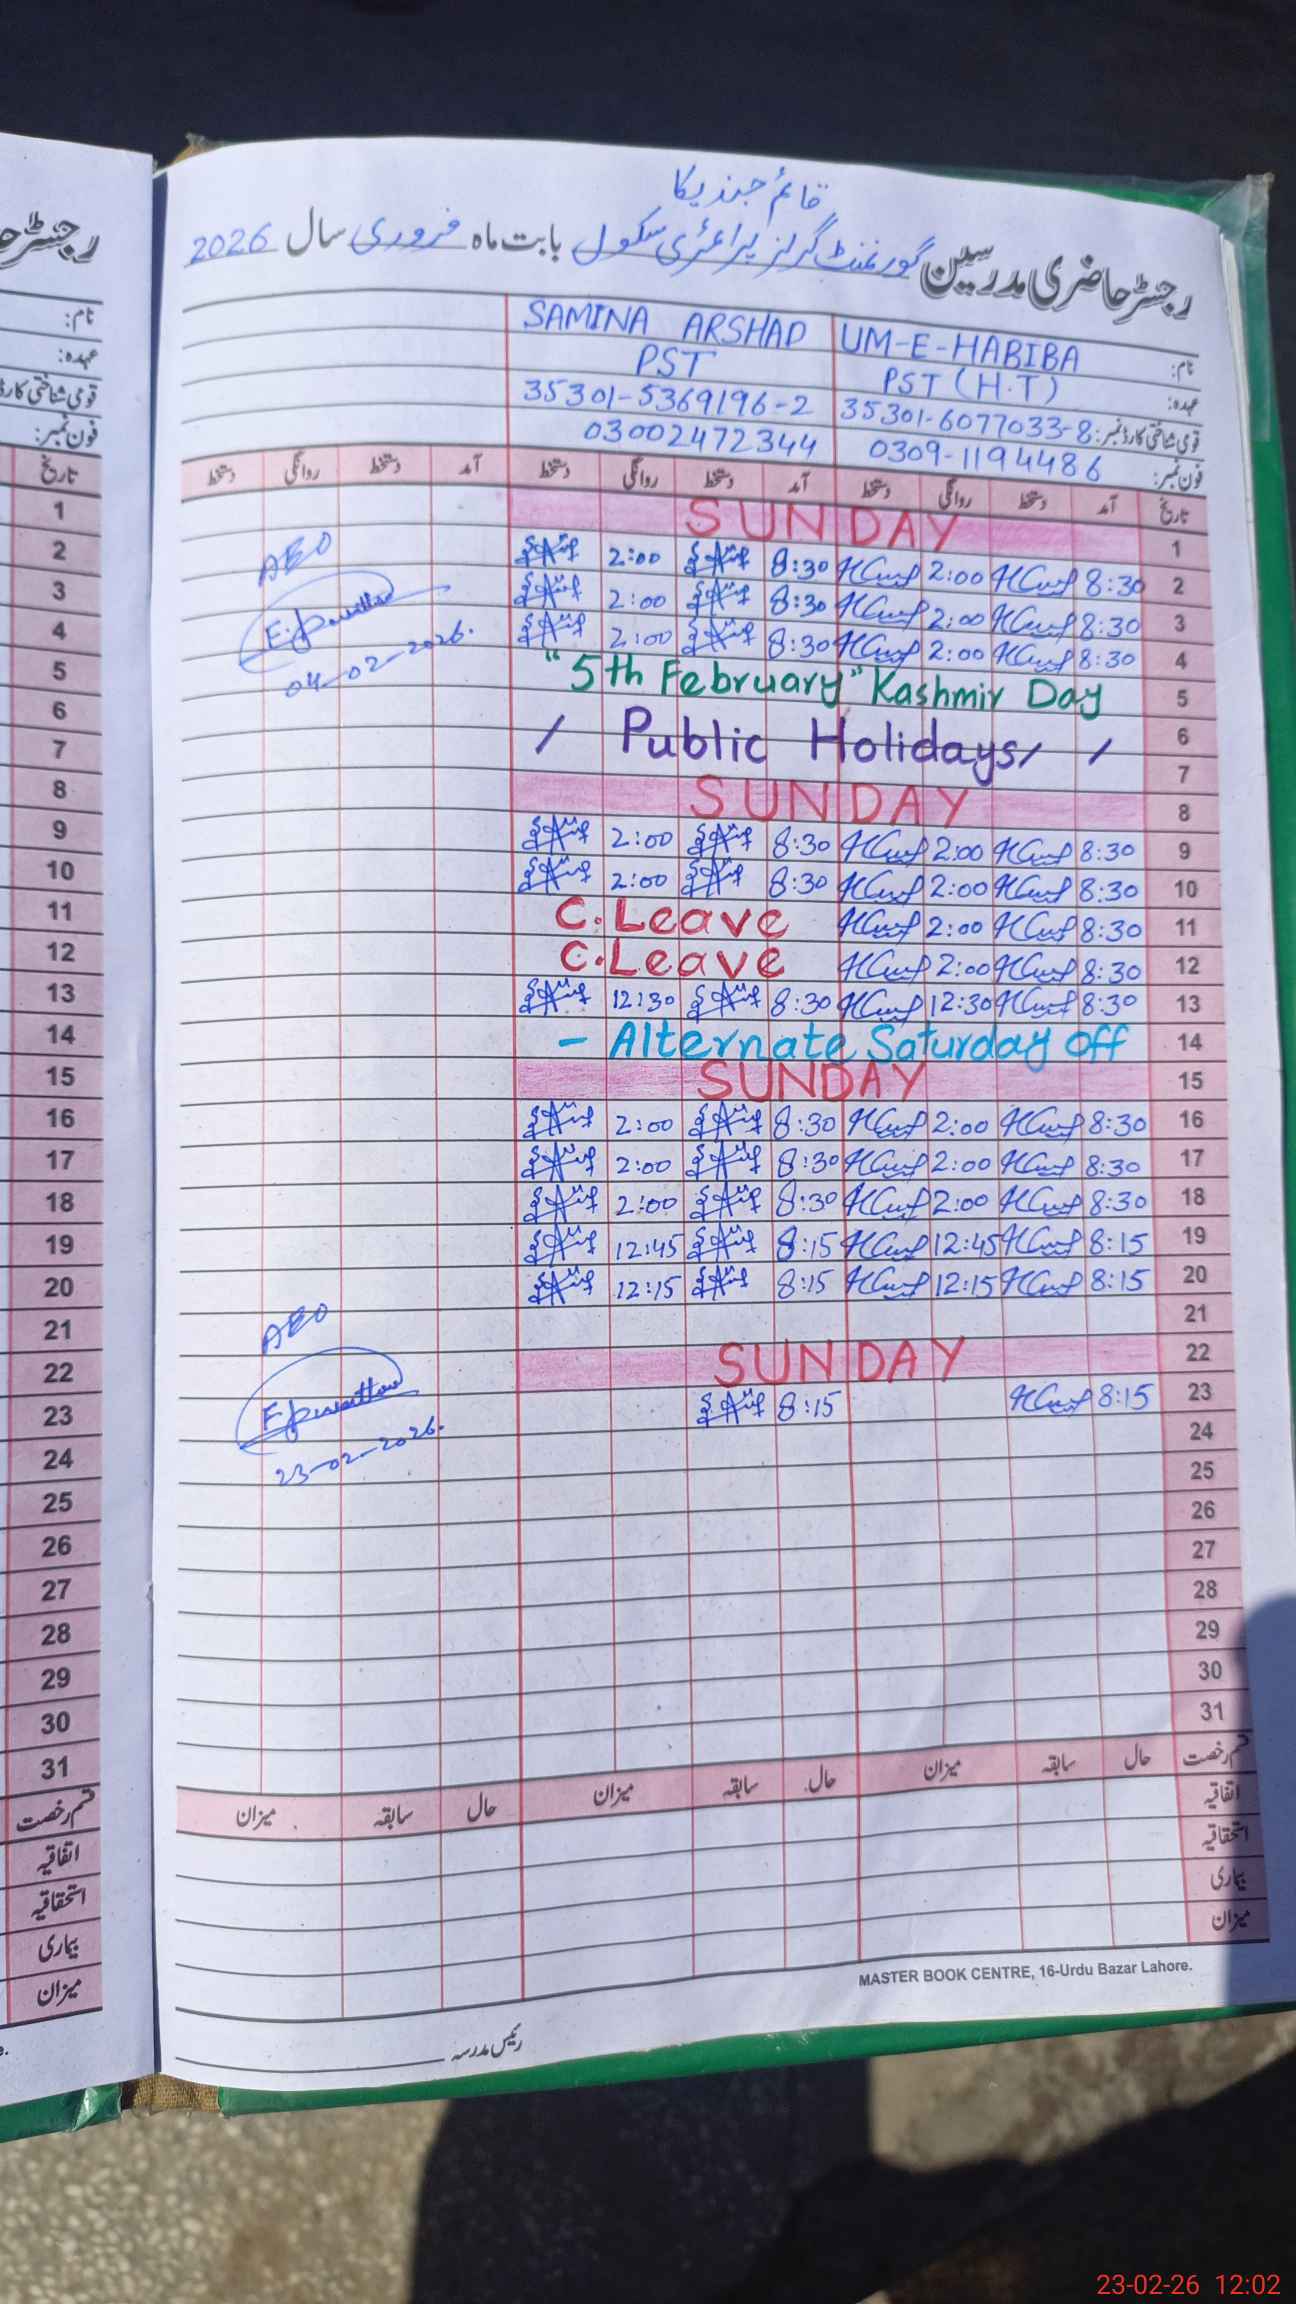 قائم جندیکا
رجسٹر حاضری مدرسین گورنمنٹ گرلز پرائمری سکول بابت ماہ فروری سال 2026
نام: UM-E-HABIBA SAMINA ARSHAD
عہدہ: PST (H.T) PST
قومی شناختی کارڈ نمبر: 35301-6077033-8 35301-5369196-2
فون نمبر: 0309-1194486 03002472344
تاریخ آمد دستخط روانگی دستخط آمد دستخط روانگی دستخط آمد دستخط روانگی دستخط
1 SUNDAY
2 8:30 2:00 8:30 2:00
3 8:30 2:00 8:30 2:00
4 8:30 2:00 8:30 2:00
AEO
04-02-2026.
5 "5th February" Kashmir Day
6 / Public Holidays / /
7
8 SUNDAY
9 8:30 2:00 8:30 2:00
10 8:30 2:00 8:30 2:00
11 8:30 2:00 C.Leave
12 8:30 2:00 C.Leave
13 8:30 12:30 8:30 12:30
14 - Alternate Saturday off
15 SUNDAY
16 8:30 2:00 8:30 2:00
17 8:30 2:00 8:30 2:00
18 8:30 2:00 8:30 2:00
19 8:15 12:45 8:15 12:45
20 8:15 12:15 8:15 12:15
21
22 SUNDAY
23 8:15 8:15
AEO
23-02-2026.
24
25
26
27
28
29
30
31
قسم رخصت حال سابقہ میزان حال سابقہ میزان حال سابقہ میزان
اتفاقیہ
استحقاقیہ
بیماری
میزان
MASTER BOOK CENTRE, 16-Urdu Bazar Lahore.
رئیس مدرسہ
رجسٹر
نام:
عہدہ:
قومی شناختی کارڈ
فون نمبر:
تاریخ
1
2
3
4
5
6
7
8
9
10
11
12
13
14
15
16
17
18
19
20
21
22
23
24
25
26
27
28
29
30
31
قسم رخصت
اتفاقیہ
استحقاقیہ
بیماری
میزان
23-02-26 12:02